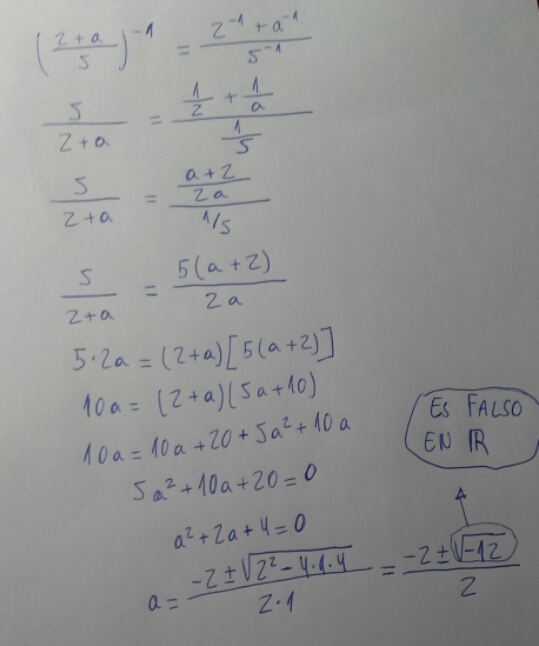 (2+a/5)^-1 = 2^-1 + a^-1/5^-1
5/2+a = 1/2 + 1/a/1/5
5/2+a = a+2/2a/1/5
5/2+a = 5(a+2)/2a
5·2a = (2+a)[5(a+2)]
10a = (2+a)(5a+10)
10a = 10a+20+5a²+10a
5a²+10a+20=0
a²+2a+4=0
a = -2±√2²-4·1·4/2·1 = -2±√-12/2
ES FALSO
EN IR